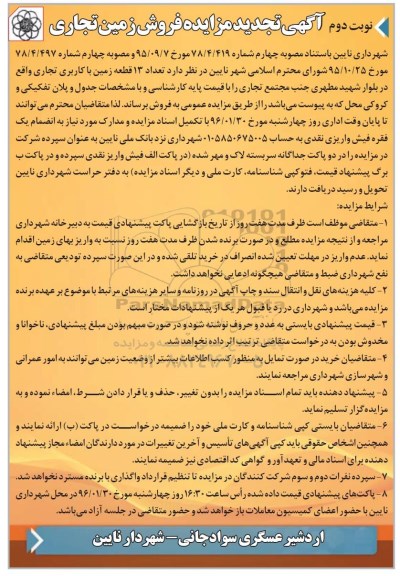 نوبت دوم
آگهی تجدید مزایده فروش زمین تجاری
شهرداری نایین باستناد مصوبه چهارم شماره ۷۸/۴/۴۱۹ مورخ ۹۵/۰۹/۷ و مصوبه چهارم شماره ۷۸/۴/۴۹۷
مورخ ۹۵/۱۰/۲۵ شورای محترم اسلامی شهر نایین در نظر دارد تعداد ۱۳ قطعه زمین با کاربری تجاری واقع
در بلوار شهید مطهری جنب مجتمع تجاری را با قیمت پایه کارشناسی و با مشخصات جدول و پلان تفکیکی و
کروکی محل که به پیوست می‌باشد را از طریق مزایده عمومی به فروش برساند. لذا متقاضیان محترم می‌توانند
تا پایان وقت اداری روز چهارشنبه مورخ ۹۶/۰۱/۳۰ با تکمیل اسناد مزایده و مدارک مورد نیاز به انضمام یک
فقره فیش واریزی نقدی به حساب ۰۱۰۵۸۵۰۶۷۵۰۰۵ شهرداری نزد بانک ملی نایین به عنوان سپرده شرکت
در مزایده را در دو پاکت جداگانه سربسته لاک و مهر شده (در پاکت الف فیش واریز نقدی سپرده و در پاکت ب
برگ پیشنهاد قیمت، فتوکپی شناسنامه، کارت ملی و دیگر اسناد مزایده) به دفتر حراست شهرداری نایین
تحویل و رسید دریافت دارند.
شرایط مزایده:
۱- متقاضی موظف است ظرف مدت هفت روز از تاریخ بازگشایی پاکت پیشنهادی قیمت به دبیرخانه شهرداری
مراجعه و از نتیجه مزایده مطلع و در صورت برنده شدن ظرف مدت هفت روز نسبت به واریز بهای زمین اقدام
نماید. عدم واریز در مهلت تعیین شده انصراف در خرید تلقی شده و در این صورت سپرده تودیعی متقاضی به
نفع شهرداری ضبط و متقاضی هیچگونه ادعایی نخواهد داشت.
۲- کلیه هزینه‌های نقل و انتقال سند و چاپ آگهی در روزنامه و سایر هزینه‌های مرتبط با موضوع بر عهده برنده
مزایده می‌باشد و شهرداری در رد یا قبول هر یک از پیشنهادات مختار است.
۳- قیمت پیشنهادی بایستی به عدد و حروف نوشته شود و در صورت مبهم بودن مبلغ پیشنهادی، ناخوانا و
مخدوش بودن به درخواست متقاضی ترتیب اثر داده نخواهد شد.
۴- متقاضیان خرید در صورت تمایل به منظور کسب اطلاعات بیشتر از وضعیت زمین می‌توانند به امور عمرانی
و شهرسازی شهرداری مراجعه نمایند.
۵- پیشنهاد دهنده باید تمام اسناد مزایده را بدون تغییر، حذف و یا قرار دادن شرط، امضاء نموده و به
مزایده گزار تسلیم نماید.
۶- متقاضیان بایستی کپی شناسنامه و کارت ملی خود را ضمیمه درخواست در پاکت (ب) ارائه نمایند و
همچنین اشخاص حقوقی باید کپی آگهی‌های تأسیس و آخرین تغییرات در مورد دارندگان امضاء مجاز پیشنهاد
دهنده برای اسناد مالی و تعهدآور و گواهی کد اقتصادی نیز ضمیمه نمایند.
۷- سپرده نفرات دوم و سوم شرکت کنندگان در مزایده تا تنظیم قرارداد واگذاری با برنده مسترد نخواهد شد.
۸- پاکت‌های پیشنهادی قیمت داده شده رأس ساعت ۱۶:۳۰ روز چهارشنبه مورخ ۹۶/۰۱/۳۰ در محل شهرداری
نایین با حضور اعضای کمیسیون معاملات باز خواهد شد و حضور متقاضی در جلسه آزاد می‌باشد.
اردشیر عسگری سوادجانی - شهردار نایین